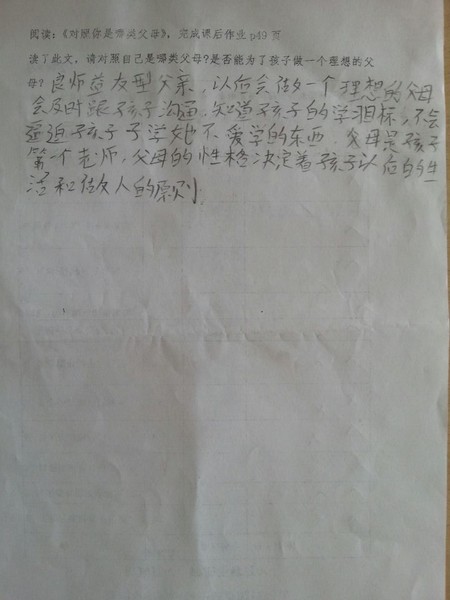 阅读：《对照你是哪类父母》，完成课后作业 p49 页
读了此文，请对照自己是哪类父母？是否能为了孩子做一个理想的父
母？良师益友型父亲，以后会做一个理想的父母
会及时跟孩子沟通，知道孩子的学习目标，不会
逼迫孩子学她不爱学的东西，父母是孩子
第一个老师，父母的性格决定着孩子以后的生
活和做人的原则，